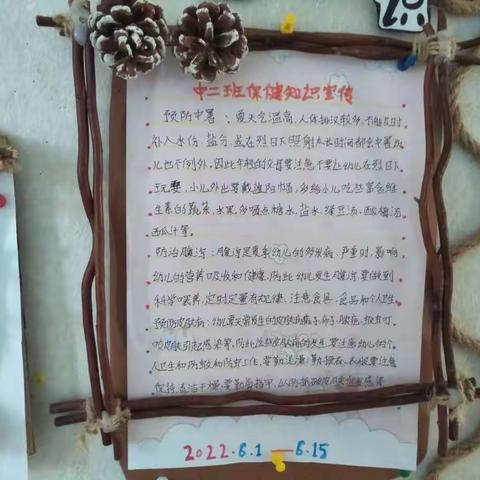 中二班保健知识宣传
预防中暑：夏天气温高，人体排汗较多，不能及时
补入水份、盐分，或在烈日下照射太长时间都会中暑，幼
儿也不例外，因此年轻的父母要注意不要让幼儿在烈日下
玩耍，小儿外出要戴遮阳帽，多给小儿吃些富含维
生素的蔬菜，水果，多喝点糖水，盐水，绿豆汤，酸梅汤，
西瓜汁等。
防治腹泻：腹泻是夏季幼儿的多发病，严重时，影响
幼儿的营养吸收和健康，防止幼儿发生腹泻，要做到
科学喂养，定时定量有规律，注意食具、食品和个人卫生
预防皮肤病：幼儿夏天常发生的皮肤病痱子，疖子，脓疱，蚊虫叮
咬皮肤引起感染等，防止这些皮肤病的发生，要注意幼儿的个
人卫生和防蚊和防虫工作，要勤洗澡，勤换衣，衣服要注意
保持清洁干燥，要勤剪指甲，以防抓破皮肤引起感染
2022.6.1—6.15